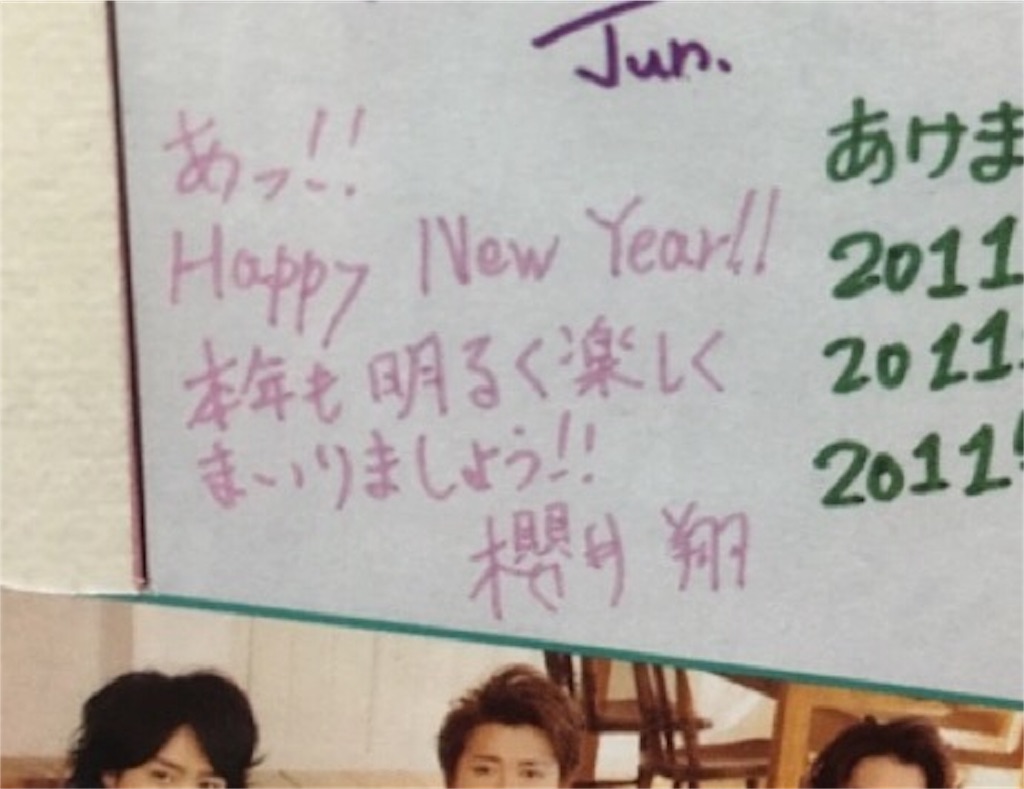 Jun.
あっ!!
Happy New Year!!
本年も明るく楽しく
まいりましょう!!
櫻井 翔
あけま
2011
2011
2011